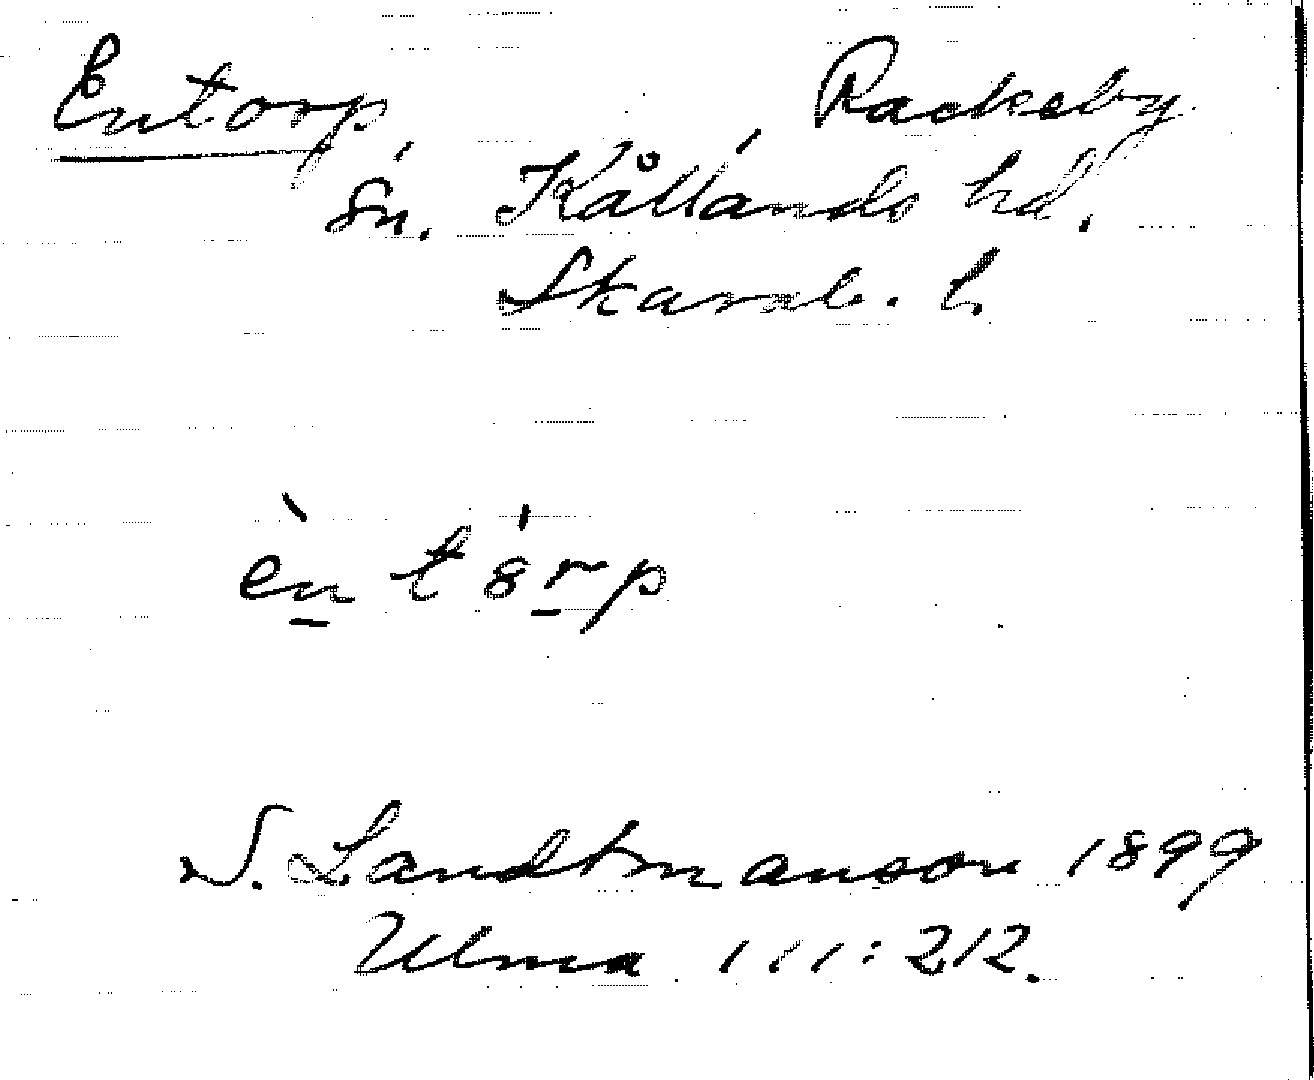 Entorp Rackeby
Sn. Kållands hd.
Skarab. l.
èn tórp
S. Landtmanson 1899
Ulma 111:212.